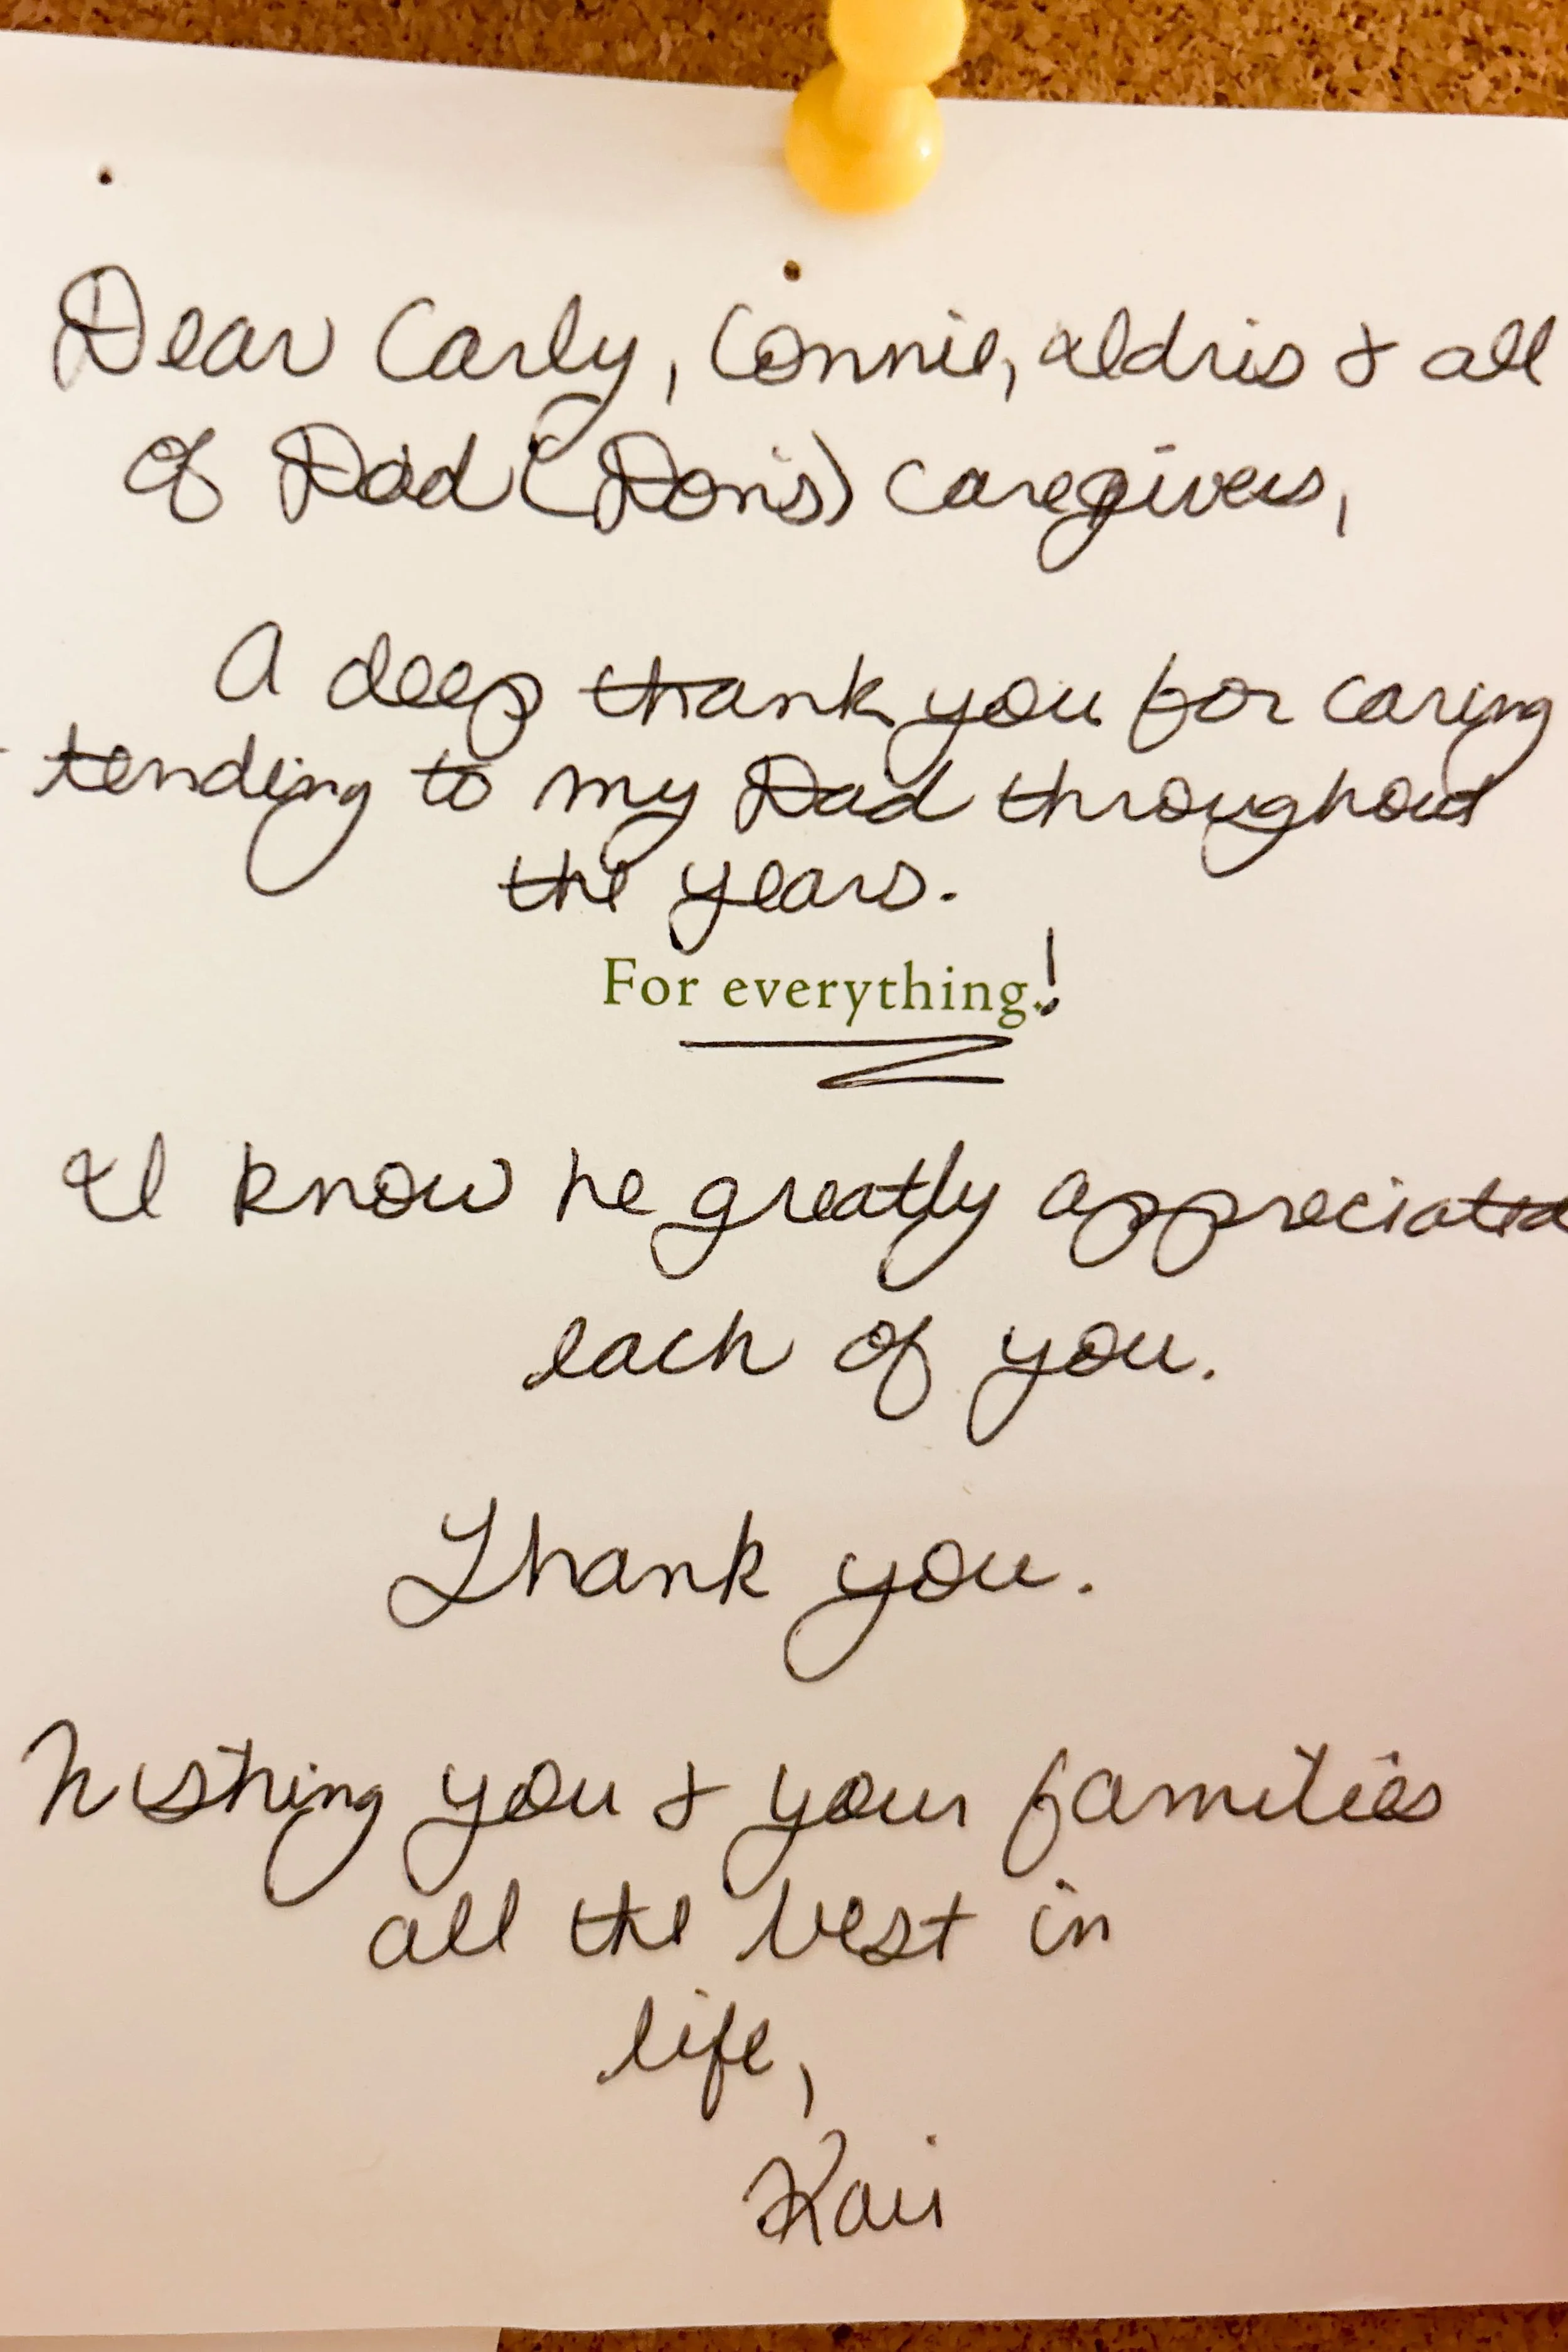 Dear Carly, Connie, Idris & all
of Dad (Don's) caregivers,
A deep thank you for caring
tending to my Dad throughout
the years.
For everything!
I know he greatly appreciated
each of you.
Thank you.
Wishing you & your families
all the best in
life,